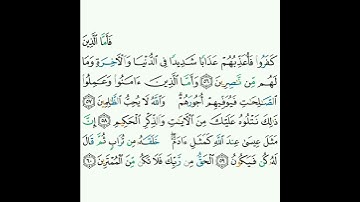 فَأَمَّا الَّذِينَ
كَفَرُوا فَأُعَذِّبُهُمْ عَذَابًا شَدِيدًا فِي الدُّنْيَا وَالْآخِرَةِ وَمَا
لَهُم مِّن نَّاصِرِينَ ٥٦ وَأَمَّا الَّذِينَ ءَامَنُوا وَعَمِلُوا
الصَّالِحَاتِ فَيُوَفِّيهِمْ أُجُورَهُمْ وَاللَّهُ لَا يُحِبُّ الظَّالِمِينَ ٥٧
ذَٰلِكَ نَتْلُوهُ عَلَيْكَ مِنَ الْآيَاتِ وَالذِّكْرِ الْحَكِيمِ ٥٨ إِنَّ
مَثَلَ عِيسَىٰ عِندَ اللَّهِ كَمَثَلِ ءَادَمَ خَلَقَهُ مِن تُرَابٍ ثُمَّ قَالَ
لَهُ كُن فَيَكُونُ ٥٩ الْحَقُّ مِن رَّبِّكَ فَلَا تَكُن مِّنَ الْمُمْتَرِينَ ٦٠